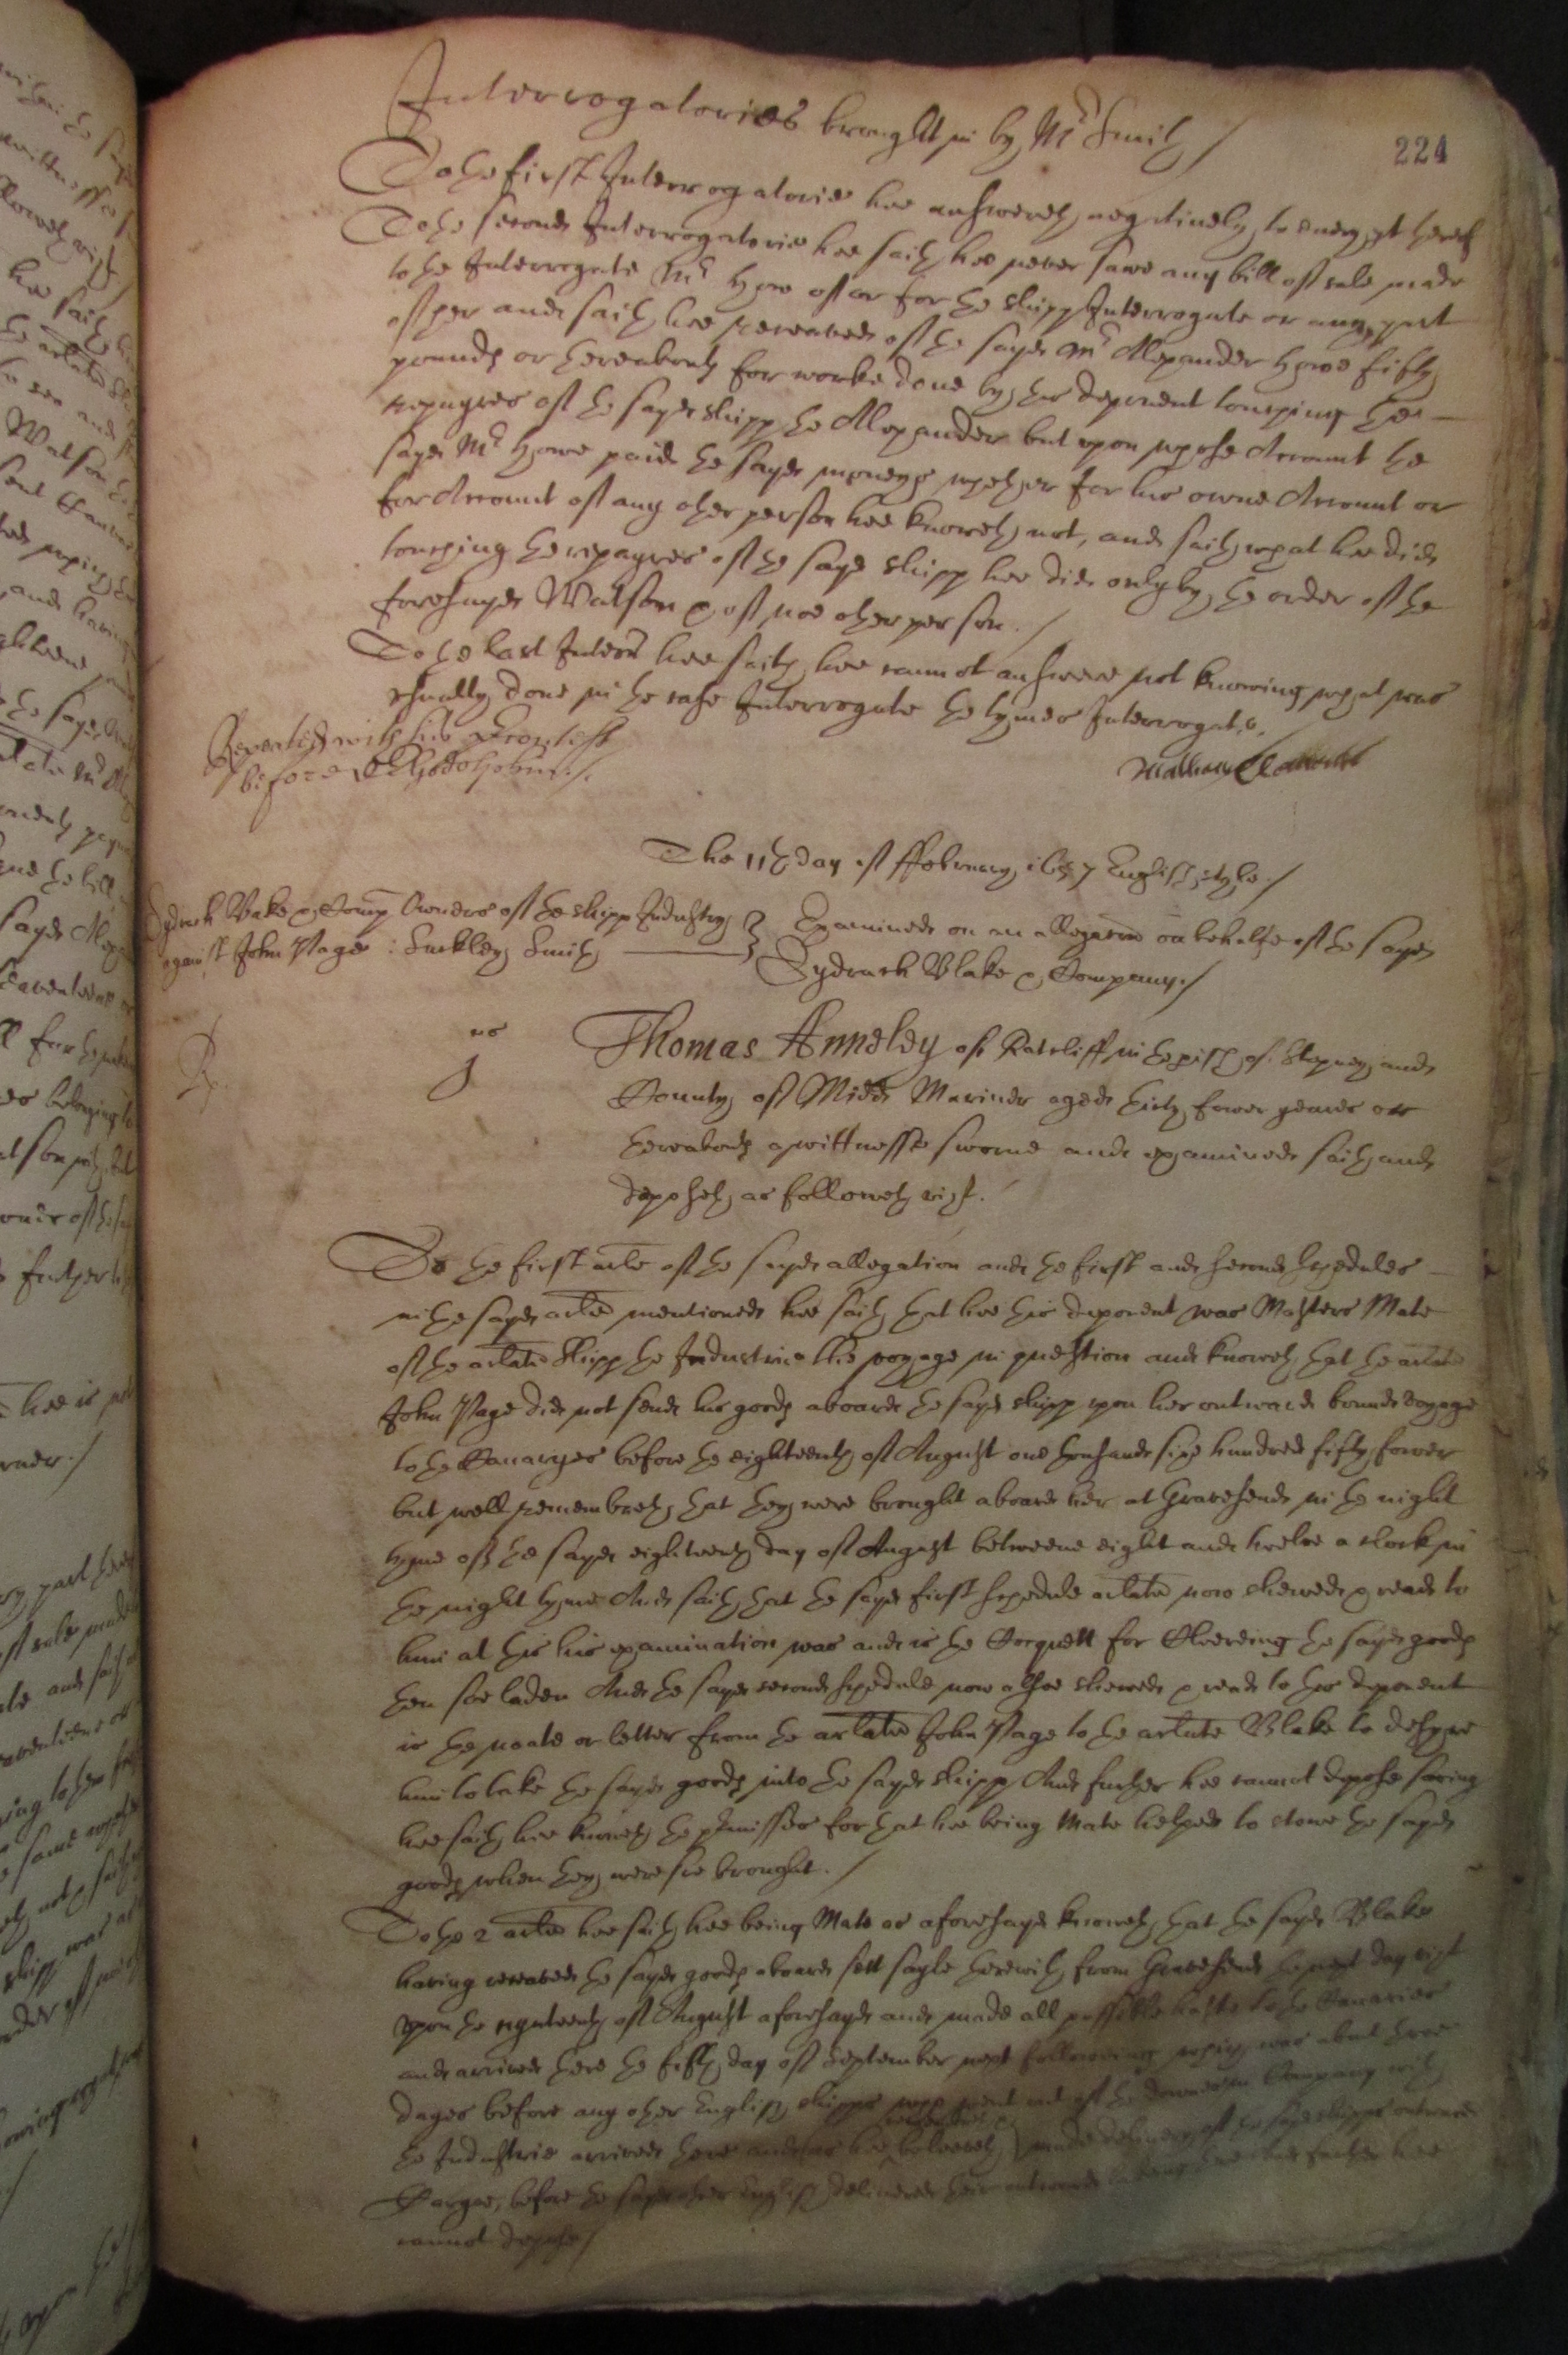 224
Interrogatories brought in by Mr Smith /
To the first Interrogatorie hee answereth negatively to every pt thereof
To the second Interrogatorie hee saith hee never sawe any bill of sale made
to the Interrogate Mr Howe of or for the shipp Interrogate or any part
of her and saith hee receaved of the sayd Mr Alexander Howe fifty
pounds or thereabouts for worke done by this deponent touching the
repayres of the sayd shipp the Alexander but upon whose Accompt the
sayd Mr Howe paid the sayd moneys whether for his owne Accompt or
for Accompt of any other person hee knoweth not, and saith what hee did
touching the repayres of the sayd shipp hee did only by the order of the
foresayd Watson & of noe other person. /
To the last Interr hee saith hee cannot answere not knowing what was
usually done in the case Interrogate the tymes Interrogate.
Repeated with his Contest
before Dr Godolphin./.
The 11th day of ffebruary 1657 English style. /
Sydrach Blake & Comp Owners of the shipp Industry
against John Page : Suckley Smith
Examined on an allegation on behalfe of the sayd
Sydrach Blake & Company. /
Rp.
1us
Thomas Anneley of Ratcliff in the pish of Stepney and
County of Midd Mariner aged thirty fower yeares or
thereabouts a wittnesse sworne and examined saith and
deposeth as followeth vizt. /
To the first arle of the sayd allegation and the first and second schedules
in the sayd arlte mentioned hee saith that hee this deponent was Masters Mate
of the arlate shipp the Industrie the voyage in question and knoweth that the arlate
John Page did not send his goods aboard the sayd shipp upon her outward bound voyage
to the Canaryes before the eighteenth of August one thousand sixe hundred fifty fower
but well remembreth that they were brought aboard her at Gravesend in the night
tyme of the sayd eighteenth day of August betweene eight and twelve a clock in
the night tyme And saith that the sayd first schedule arlate now shewed & read to
him at this his examination was and is the Cocquett for Cleereing the sayd goods
then soe laden And the sayd second schedule now alsoe shewed & read to this deponent
is the noate or letter from the arlate John Page to the arlate Blake to desyre
him to take the sayd goods into the sayd shipp And further hee cannot depose saving
hee saith hee knoweth the pmisses for that hee being Mate helped to stowe the sayd
goods when they were soe brought. /
To the 2 arlte hee saith hee being Mate as aforesayd knoweth that the sayd Blake
having receaved the sayd goods aboard sett sayle therewith from Gravesend the next day vizt
upon the nynteenth of August aforesayd and made all possible haste to the Canaries
and arrived there the fifth day of September next following which was about three
dayes before any other English shipps went out of the Downes in Company with
the Industrie arrived there and as hee beleeveth made delivery of the sayd shipps outward
Cargoe, before the sayd other English delivered their outward lading And further hee
cannot depose /